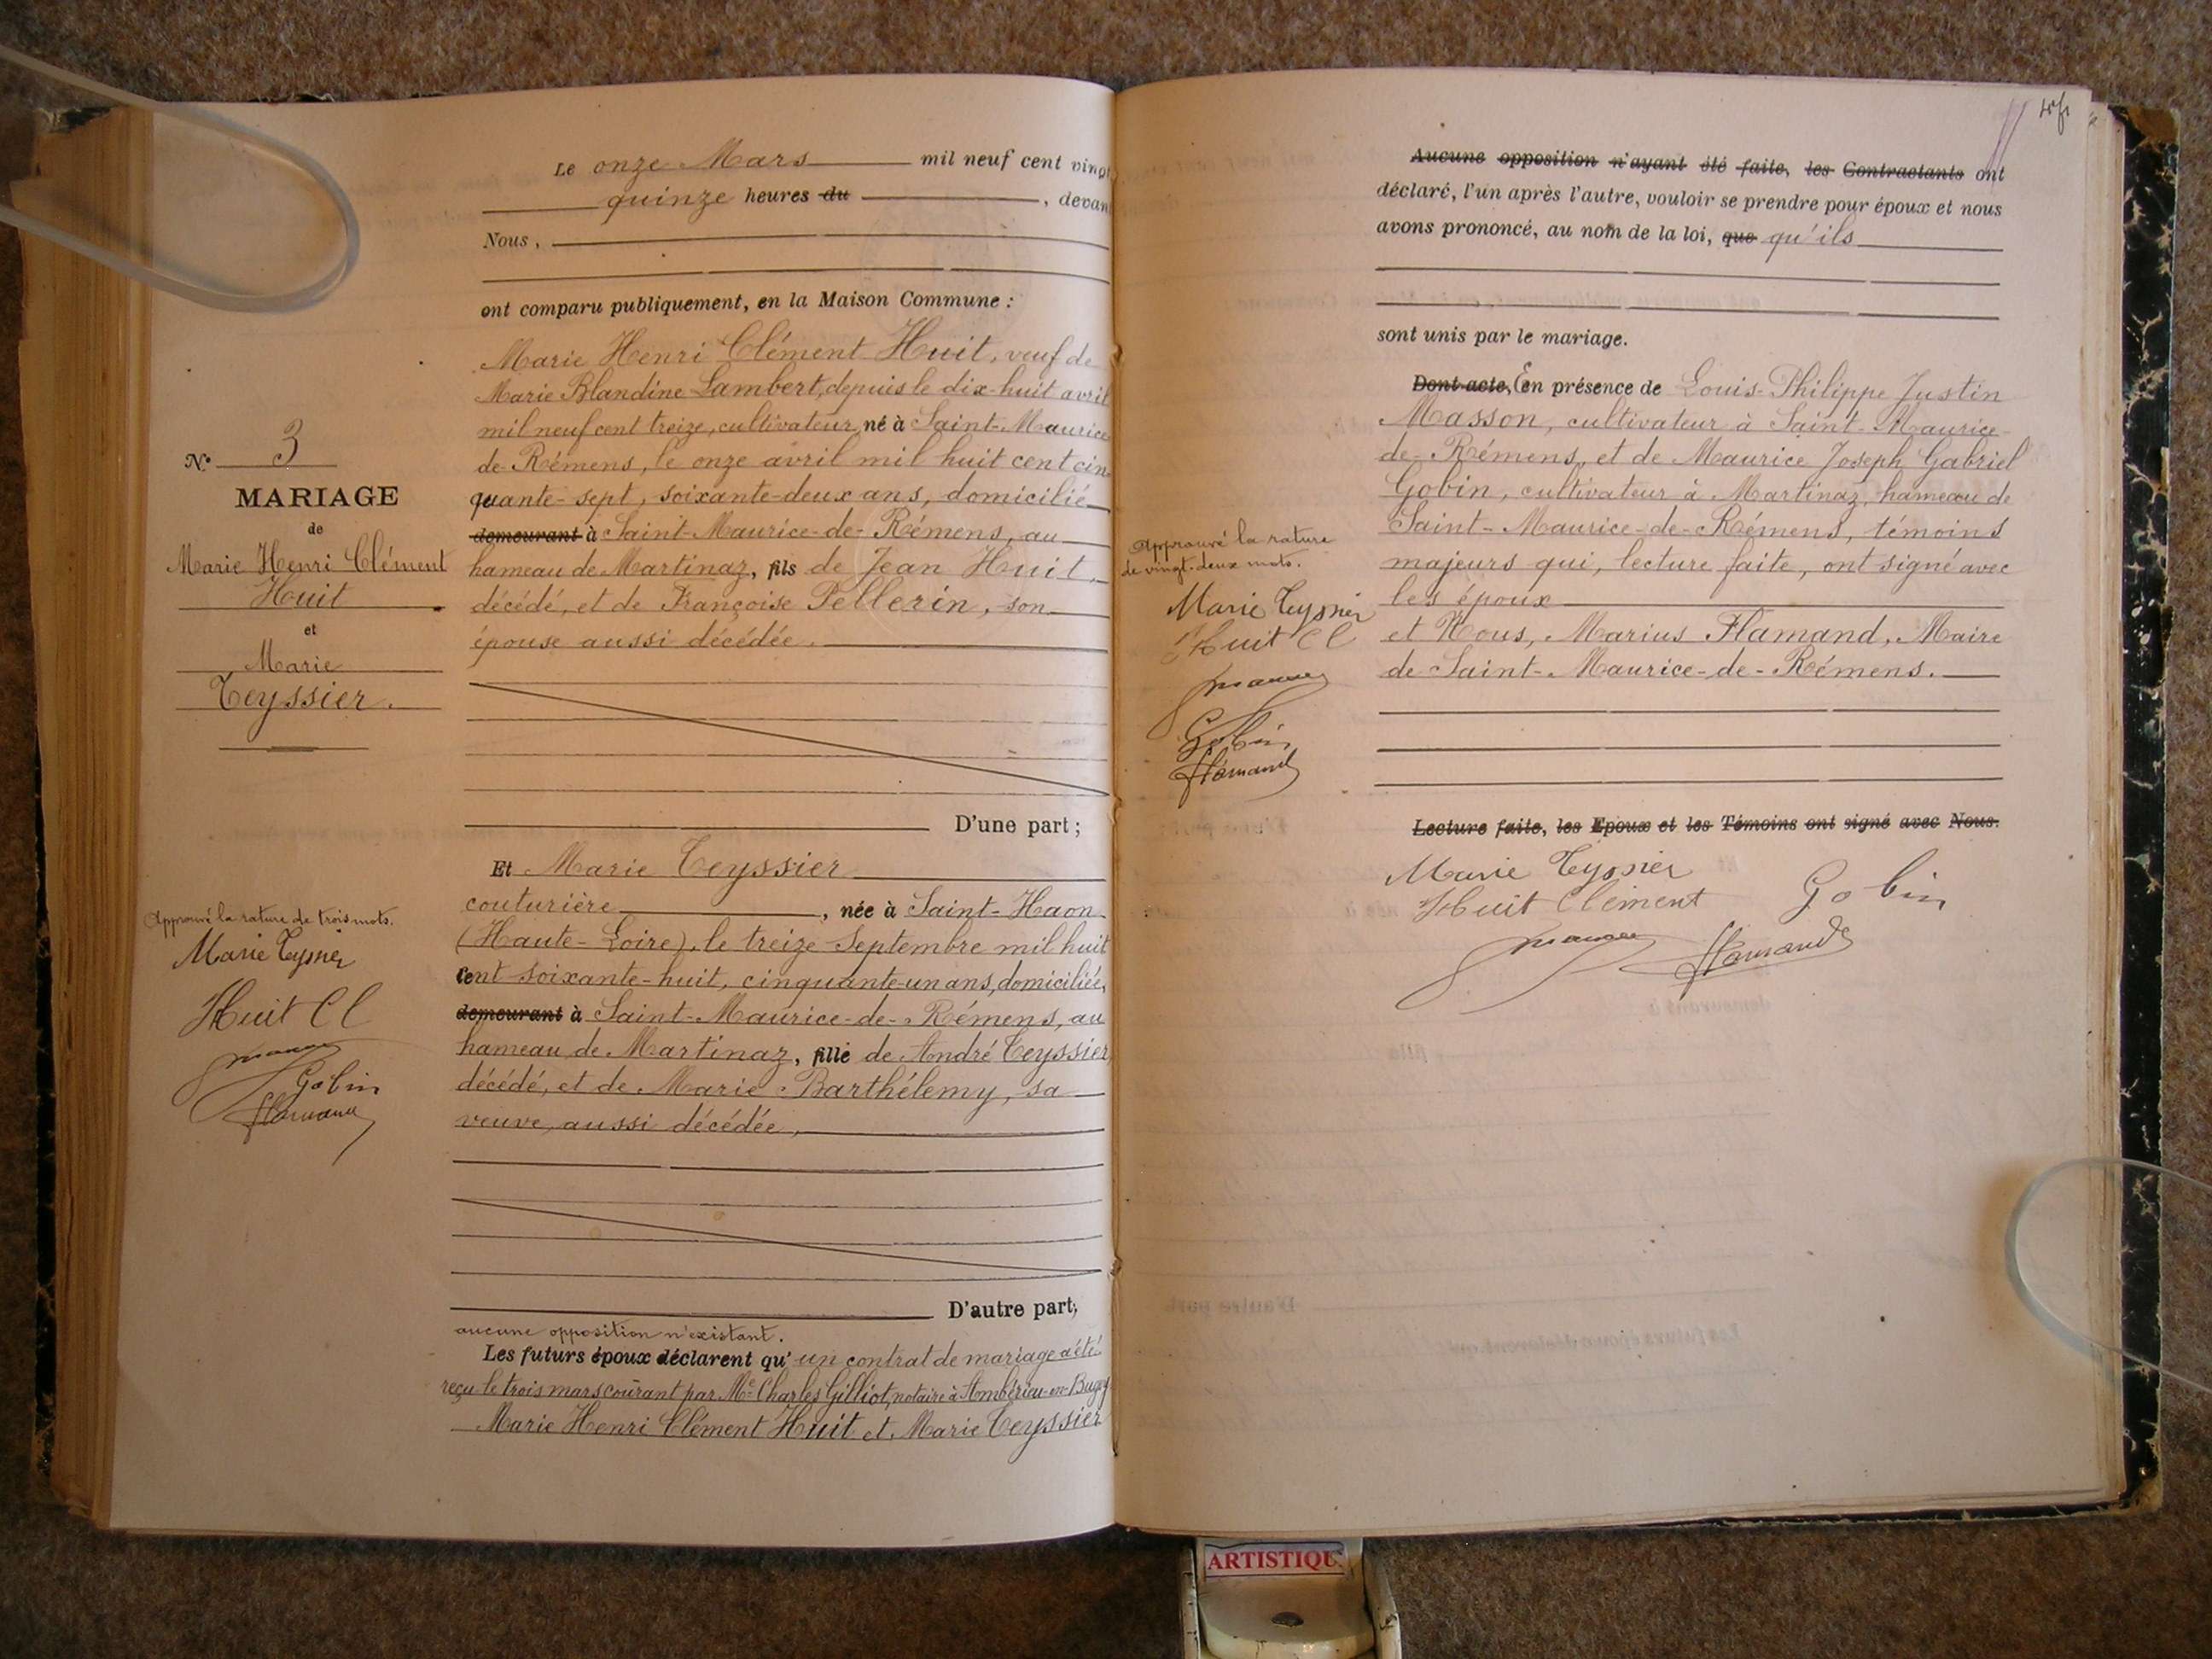 Le onze Mars mil neuf cent vingt
quinze heures du , devant
Nous,
ont comparu publiquement, en la Maison Commune :
Marie Henri Clément Huit, veuf de
Marie Blandine Lambert, depuis le dix-huit avril
mil neuf cent treize, cultivateur, né à Saint-Maurice
de-Rémens, le onze avril mil huit cent cin
quante-sept, soixante-deux ans, domicilié
demeurant à Saint-Maurice-de-Rémens, au
hameau de Martinaz, fils de Jean Huit,
décédé, et de Françoise Pellerin, son
épouse aussi décédée.
D'une part ;
Et Marie Teyssier
couturière , née à Saint-Haon
(Haute-Loire), le treize Septembre mil huit
cent soixante-huit, cinquante-un ans, domiciliée,
demeurant à Saint-Maurice-de-Rémens, au
hameau de Martinaz, fille de André Teyssier,
décédé, et de Marie Barthélemy, sa
veuve, aussi décédée,
D'autre part,
aucune opposition n'existant.
Les futurs époux déclarent qu'un contrat de mariage a été
reçu le trois mars courant par Me Charles Gilliot, notaire à Ambérieu-en-Bugey
Marie Henri Clément Huit et Marie Teyssier
N° 3
MARIAGE
de
Marie Henri Clément
Huit
et
Marie
Teyssier.
Approuvé la rature de trois mots.
Marie Teyssier
Huit Cl
Masson
Gobin
Flamand
Aucune opposition n'ayant été faite, les Contractants ont
déclaré, l'un après l'autre, vouloir se prendre pour époux et nous
avons prononcé, au nom de la loi, que qu'ils
sont unis par le mariage.
Dont acte, En présence de Louis-Philippe Justin
Masson, cultivateur à Saint-Maurice-
de-Rémens, et de Maurice Joseph Gabriel
Gobin, cultivateur à Martinaz, hameau de
Saint-Maurice-de-Rémens, témoins
majeurs qui, lecture faite, ont signé avec
les époux
et Nous, Marius Flamand, Maire
de Saint-Maurice-de-Rémens.
Lecture faite, les Epoux et les Témoins ont signé avec Nous.
Marie Teyssier
Huit Clément Gobin
Masson Flamand
Approuvé la rature
de vingt-deux mots.
Marie Teyssier
Huit Cl
Masson
Gobin
Flamand
ARTISTIQU